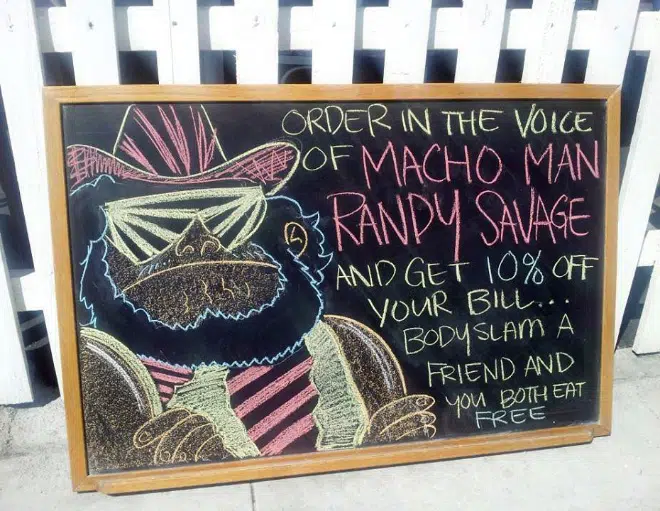 ORDER IN THE VOICE
OF MACHO MAN
RANDY SAVAGE
AND GET 10% OFF
YOUR BILL...
BODYSLAM A
FRIEND AND
YOU BOTH EAT
FREE